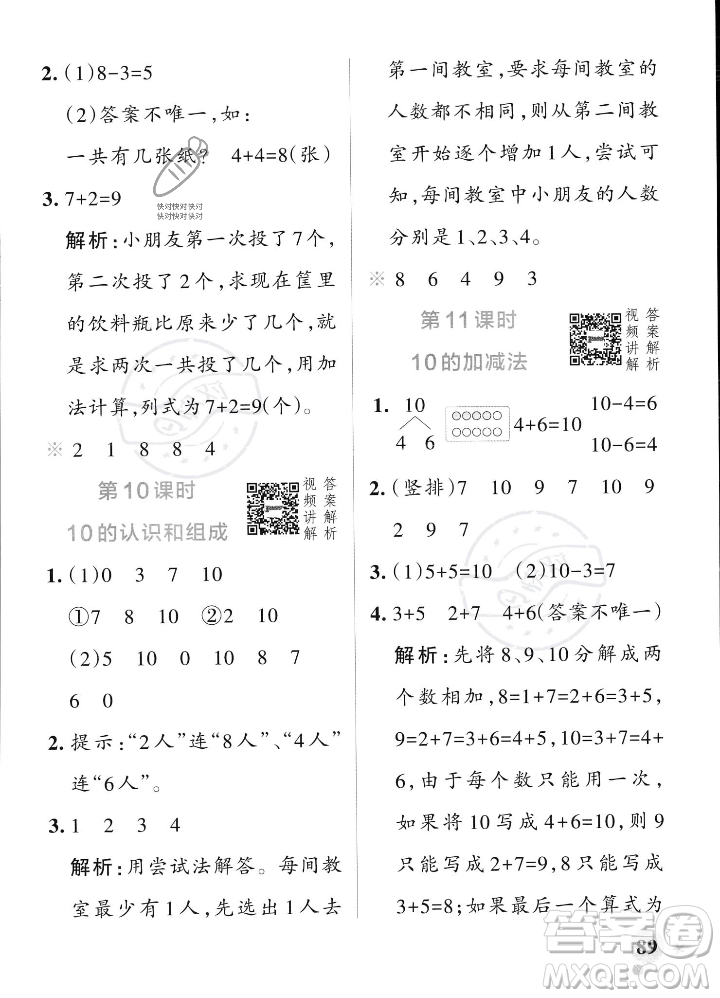 2. (1)8-3=5
(2)答案不唯一,如:
一共有几张纸? 4+4=8(张)
3. 7+2=9
快对快对快对
快对快对快对
解析:小朋友第一次投了7个,
第二次投了2个,求现在筐里
的饮料瓶比原来少了几个,就
是求两次一共投了几个,用加
法计算,列式为7+2=9(个)。
※ 2 1 8 8 4
第10课时
10的认识和组成
视频讲解
答案解析
1. (1)0 3 7 10
①7 8 10 ②2 10
(2)5 10 0 10 8 7
6 0
2. 提示:“2人”连“8人”、“4人”
连“6人”。
3. 1 2 3 4
解析:用尝试法解答。每间教
室最少有1人,先选出1人去
第一间教室,要求每间教室的
人数都不相同,则从第二间教
室开始逐个增加1人,尝试可
知,每间教室中小朋友的人数
分别是1、2、3、4。
※ 8 6 4 9 3
第11课时
10的加减法
视频讲解
答案解析
1. 10
4 6
4+6=10
10-4=6
10-6=4
2. (竖排)7 10 9 7 10 9
2 9 7
3. (1)5+5=10 (2)10-3=7
4. 3+5 2+7 4+6(答案不唯一)
解析:先将8、9、10分解成两
个数相加,8=1+7=2+6=3+5,
9=2+7=3+6=4+5,10=4+6,
由于每个数只能用一次,
如果将10写成4+6=10,则9
只能写成2+7=9,8只能写成
3+5=8;如果最后一个算式为
89
答案卷
MXQE.COM